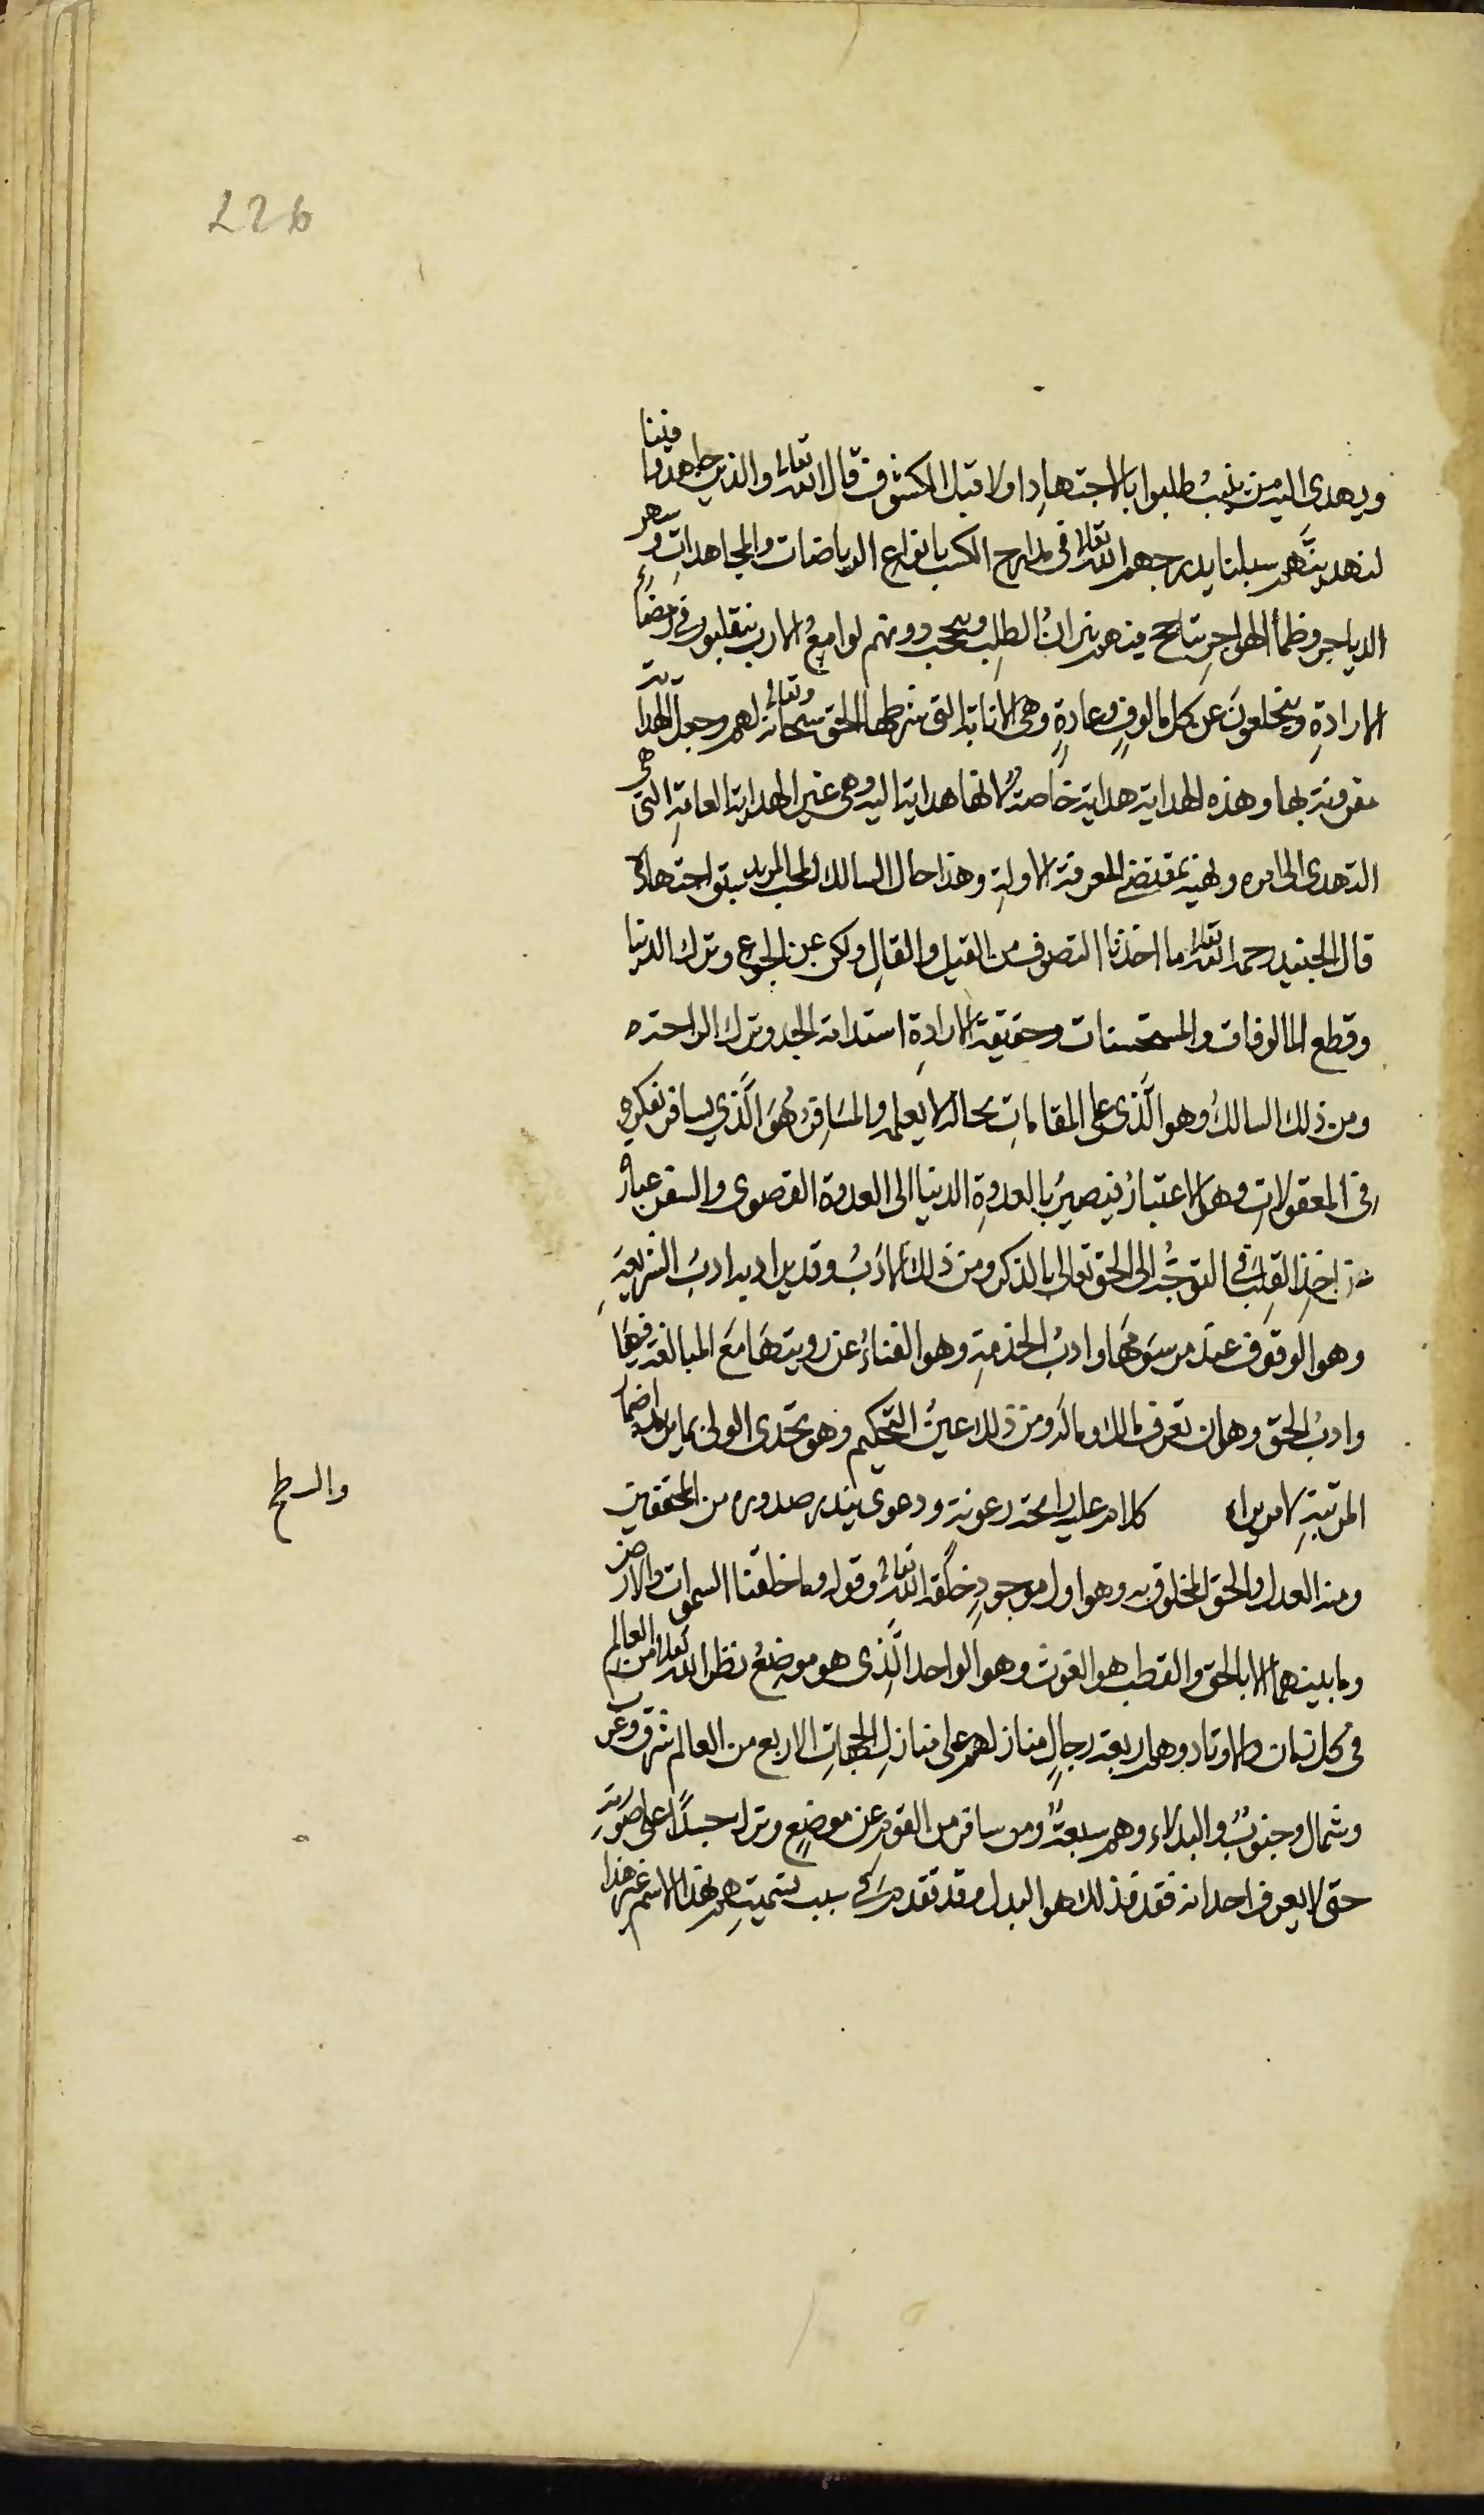 226
ويهدى اليه من ينيب طلبوا بالاجتهاد اولا قبل الكشوف قال الله تعالى والذين جاهدوا فينا
لنهدينّهم سبلنا يدرجهم الله تعالى فى مدارج الكسب بانواع الرياضات والمجاهدات وسهر
الدياجر وظمأ الهواجر تتأجج فيهم نيران الطلب وتحجب دونهم لوامع الارب يتقلبون فى رمضاء
الارادةِ وينخلعون عن كل مالوفٍ وعادةٍ وهى الانابة التى شرطها الحق سبحانه وتعالى لهم وجعل الهداية
مقرونة بها وهذه الهداية هداية خاصةٌ لانها هداية اليه وهى غير الهداية العامةِ التى هى
التهدى الى امره ونهيه بمقتضى المعرفة الاولية وهذا حال السالك المحب المريد سبق اجتهاده
قال الجنيد رحمه الله تعالى ما اخذنا التصوف من القيل والقالِ ولكن عن الجوع وترك الدنيا
وقطع المالوفات والمستحسنات وحقيقة الارادةِ استدامة الجد وترك الراحة ه
ومن ذلك السالك وهو الّذى على المقامات بحاله لا يعلمه والمسافر هو الّذي يسافر بفكره
فى المعقولاتِ وهو الاعتبار فيصيرُ بالعدوةِ الدنيا الى العدوة القصوى والسفر عبارة
عن اخذ القلب فى التوجُّه الى الحق تعالى بالذكر ومن ذلك الادبُ وقد يراد به ادبَ الشريعةِ
وهو الوقوف عند مرسومها وادبُ الخدمةِ وهو الفناءُ عن رويتها مع المبالغة فيها
وادبُ الحق وهو ان تعرف مالك وماله ومن ذلك عينُ التحكيم وهو تحدى الولى بما يريد اظهارا
المرتبةِ لامر يراه كلام عليه رائحة رعونة ودعوى يندر صدوره من المحققين
والسطح
ومنه العدل والحق المخلوق به وهو اول موجودٍ خلقه الله تعالى وقوله وما خلقنا السموات والارض
وما بينهما الا بالحق والقطب هو الغوث وهو الواحد الّذى هو موضعُ نظر الله تعالى من العالم
فى كل زمان والاوتاد وهم اربعة رجالٍ منازلهم على منازلِ الجهاتِ الاربع من العالم شرق وغرب
وشمال وجنوبٌ والبدلاء وهم سبعةٌ ومن سافر من القوم عن موضعٍ وترك جسدًا على صورته
حتى لا يعرف احد انه فقد فذلك هو البدل وقد تقدم سبب تسميتِهم بهذا الاسم غير هذا